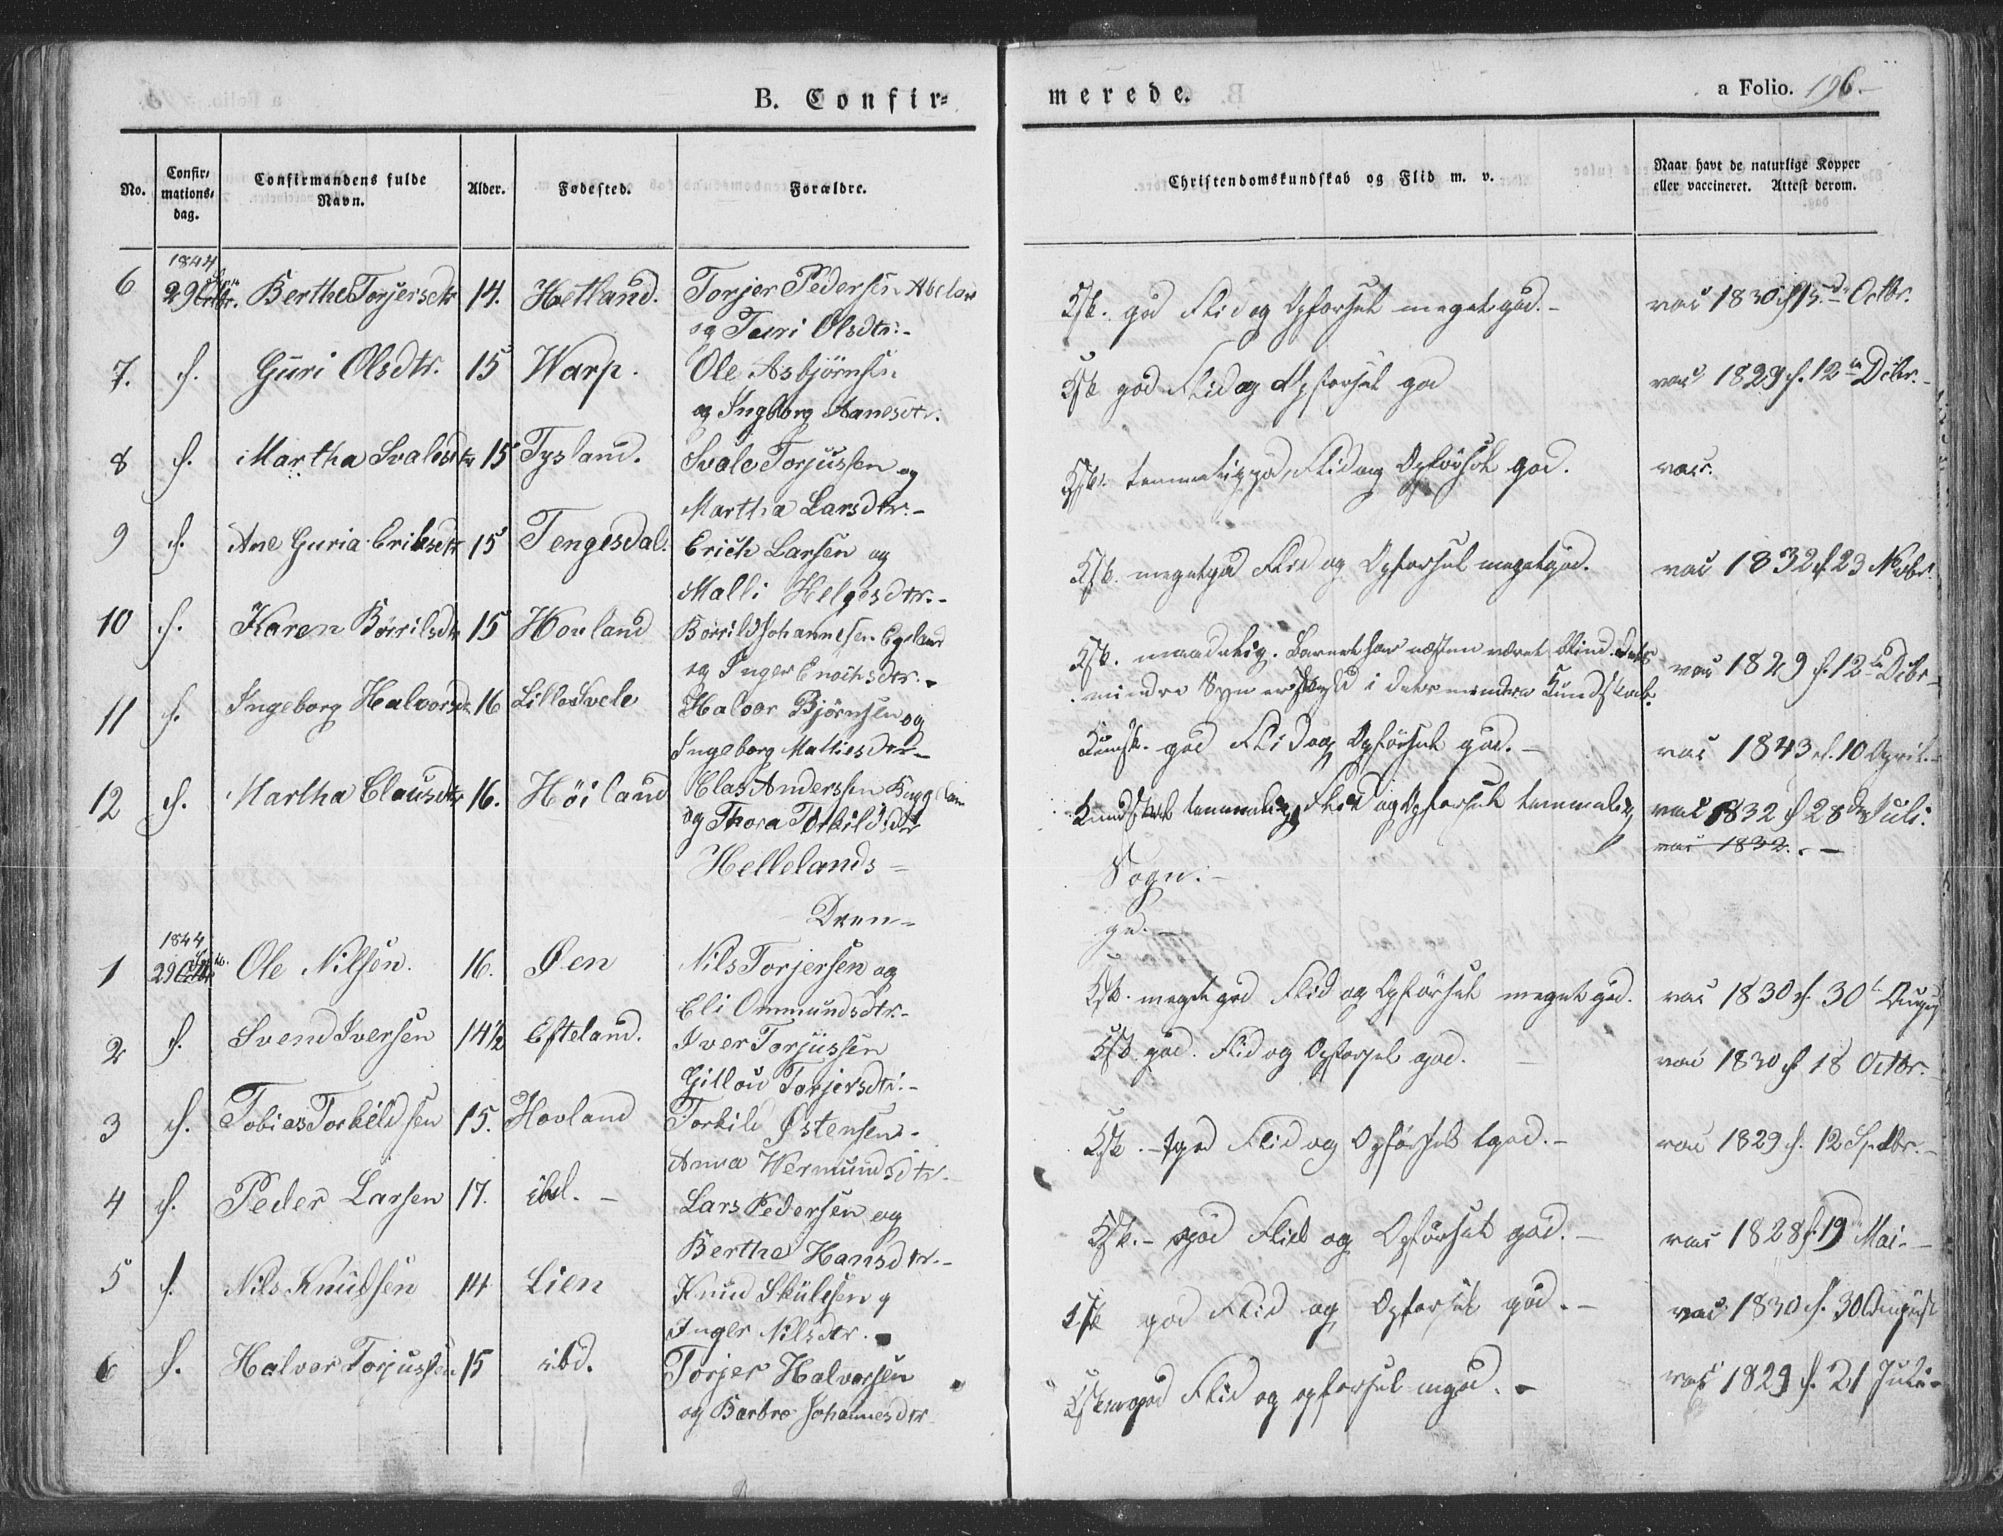 B. Confir=
merede.
a Folio. 196.
No.
Confir=
mations=
dag.
Confirmandens fulde
Navn.
Alder.
Fødested.
Forældre.
Christendomskundskab og Flid m. v.
Naar havt de naturlige Kopper
eller vaccineret. Attest derom.
1844
6 29 Berthe Torjersdtr 14. Hetland. Torjer Pedersen
og Turi Olsdtr.-
Ksk. god Flid og Opførsel meget god.- vac 1830 d. 15de Octbr.
7. d. Guri Olsdtr. 15 Warp. Ole Asbjørnsen
og Ingborg Aanesdtr.
Ksk god Flid og Opførsel god vac 1829 d. 12te Dcbr.-
8 d. Martha Svalesdtr 15 Tysland. Svale Torjussen og
Martha Larsdtr.-
Ksk. temmelig god, Flid og Opførsel god. vac.
9 d. Ane Guria Eriksdtr 15 Tengesdal. Erich Larsen og
Malli Helgesdtr.-
Ksk. meget god Flid og Opførsel meget god. vac 1832 d. 23 Novbr.
10 d. Karen Børrilsdtr 15 Hovland Børrild Johannesen Egeland
og Inger Enochsdtr.-
Ksk. maadelig. Barnet har næsten været blind. dets
mindre Syn er Skyld i dets mindre Kundskab.
vac 1829 d. 12te Dcbr-
11 d. Ingeborg Halvorsd. 16 Lille Svele Halvor Bjørnsen og
Ingeborg Mathiesdtr-
Kundsk. god Flid og Opførsel god.- vac 1843 d. 10 April.-
12 d. Martha Clausdtr 16. Høiland Clas Anderssen
og Thora Torkildsdtr
Kundskab temmelig Flid og Opførsel temmelig vac 1832 d 28de Juli.
vac 1832.-
Hellelands=
Sogn.-
Dren=
ge.-
1844
1 29 Ole Nilsen. 16. Øen Nils Torjersen og
Eli Ommundsdtr.-
Ksk. meget god Flid og Opførsel meget god. vac 1830 d. 30te August
2 d. Svend Iversen 14½ Efteland. Iver Torjussen
Gitlou Torjersdtr.-
Ksk god. Flid og Opførsel god. vac 1830 d 18 Octbr.
3 d. Tobias Torkildsen 15. Hovland Torkild Østensen-
Anna Wermundsdtr.
Ksk.- tgod Flid og Opførsel tgod.- vac 1829 d. 12 Sptbr.-
4 d. Peder Larsen 17. ibd.- Lars Pedersen og
Berthe Hansdtr.-
Ksk.- god Flid og Opførsel god.- vac 1828 d. 19 Mai.-
5 d. Nils Knudsen 14 Lien Knud Skulesen og
Inger Nilsdtr.-
Ksk god Flid og Opførsel god.- vac 1830 d. 30 August
6 d. Halvor Torjussen 15 ibd. Torjer Halvorsen
og Barbro Johannesdtr
Ksk mgod Flid og opførsel mgod.- vac 1829 d. 21 Juli-